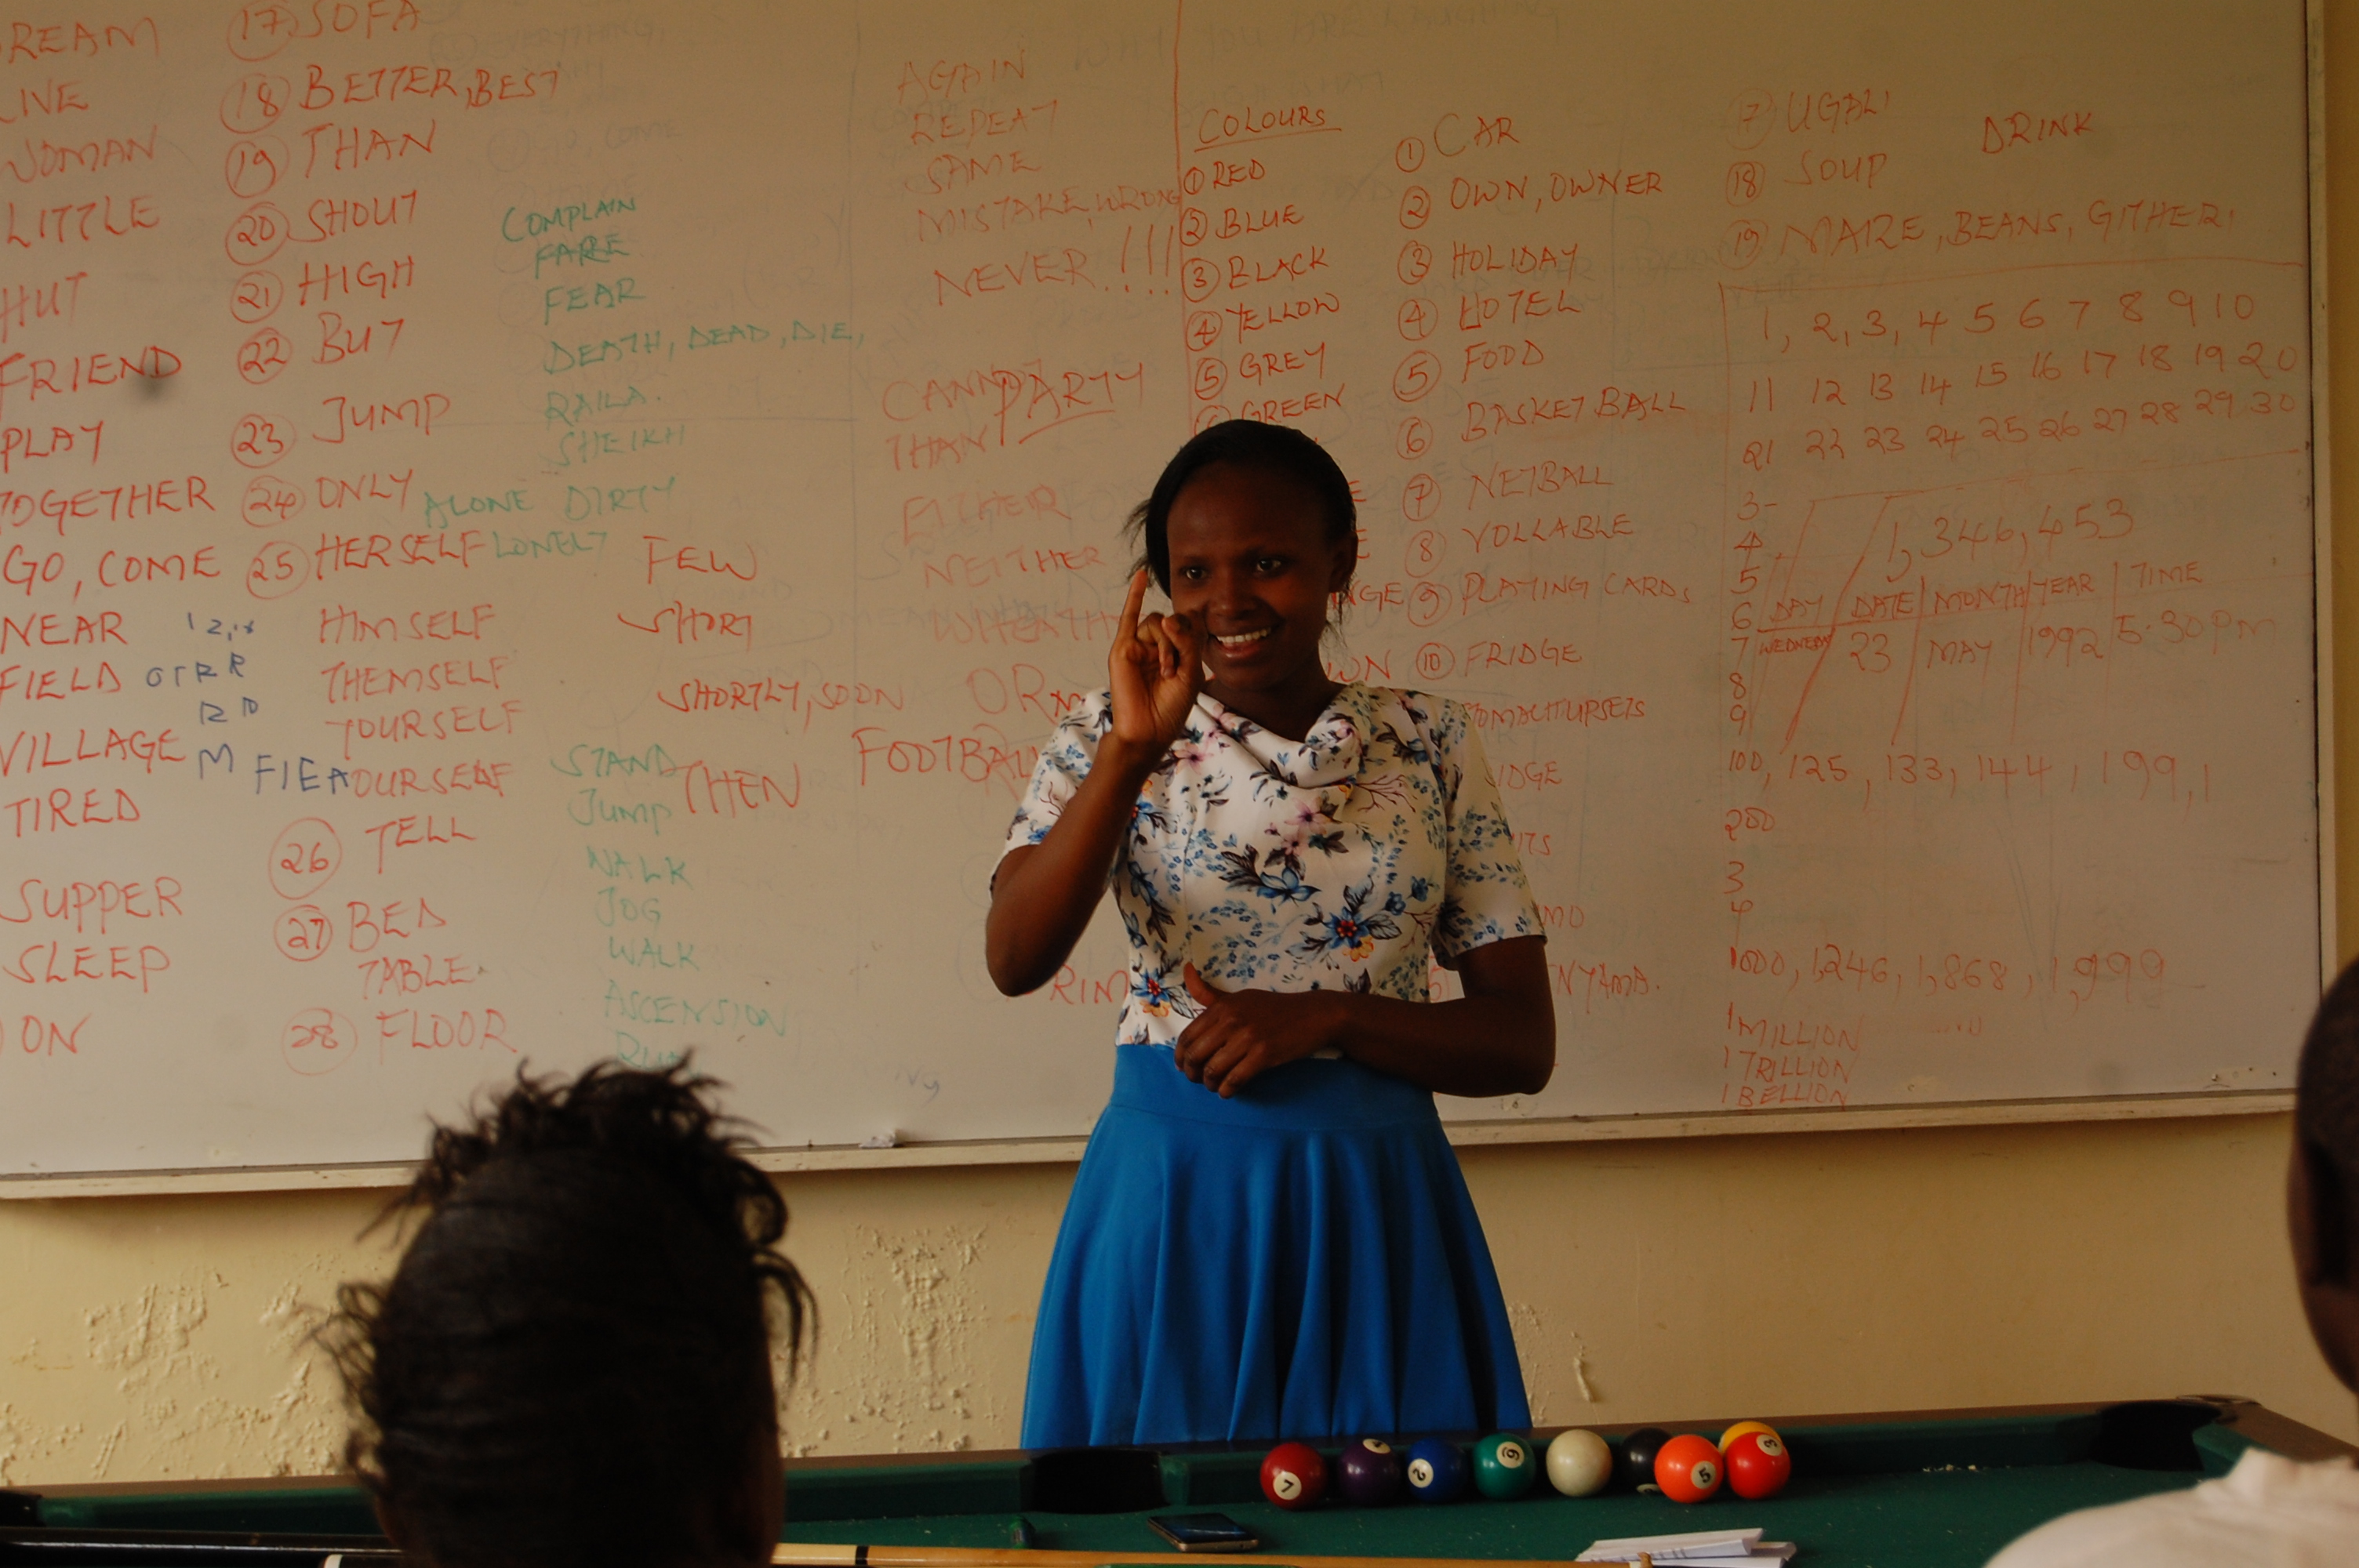 REAM
IVE
WOMAN
LITTLE
HUT
FRIEND
PLAY
TOGETHER
GO, COME
NEAR
FIELD
VILLAGE
TIRED
SUPPER
SLEEP
ON
17 SOFA
18 BETTER, BEST
19 THAN
20 SHOUT
21 HIGH
22 BUT
23 JUMP
24 ONLY
25 HERSELF
HIMSELF
THEMSELF
YOURSELF
OURSELF
26 TELL
27 BED
TABLE
28 FLOOR
COMPLAIN
FARE
FEAR
DEATH, DEAD, DIE,
RAILA.
SHEIKH
ALONE DIRTY
LONELY
FEW
SHORT
SHORTLY, SOON
THEN
STAND
JUMP
WALK
JOG
WALK
ASCENSION
AGAIN
REPEAT
SAME
MISTAKE, WRONG
NEVER!!!
PARTY
THAN
EITHER
NEITHER
OR
FOOTBALL
COLOURS
1 RED
2 BLUE
3 BLACK
4 YELLOW
5 GREY
GREEN
1 CAR
2 OWN, OWNER
3 HOLIDAY
4 HOTEL
5 FOOD
6 BASKETBALL
7 NETBALL
8 VOLLABLE
9 PLAYING CARDS
10 FRIDGE
OMACHUPSETS
IDGE
NYAMA.
17 UGALI
18 SOUP
DRINK
19 MAIZE, BEANS, GITHERI,
1, 2, 3, 4 5 6 7 8 9 10
11 12 13 14 15 16 17 18 19 20
21 22 23 24 25 26 27 28 29 30
3-
4
5
6
7
8
9
1,346,453
DAY DATE MONTH YEAR TIME
WEDNESDAY 23 MAY 1992 5:30PM
100, 125, 133, 144, 199, 1
200
3
4
1000, 1,246, 1,868, 1,999
1 MILLION
1 TRILLION
1 BELLION
7
4
2
6
5
3